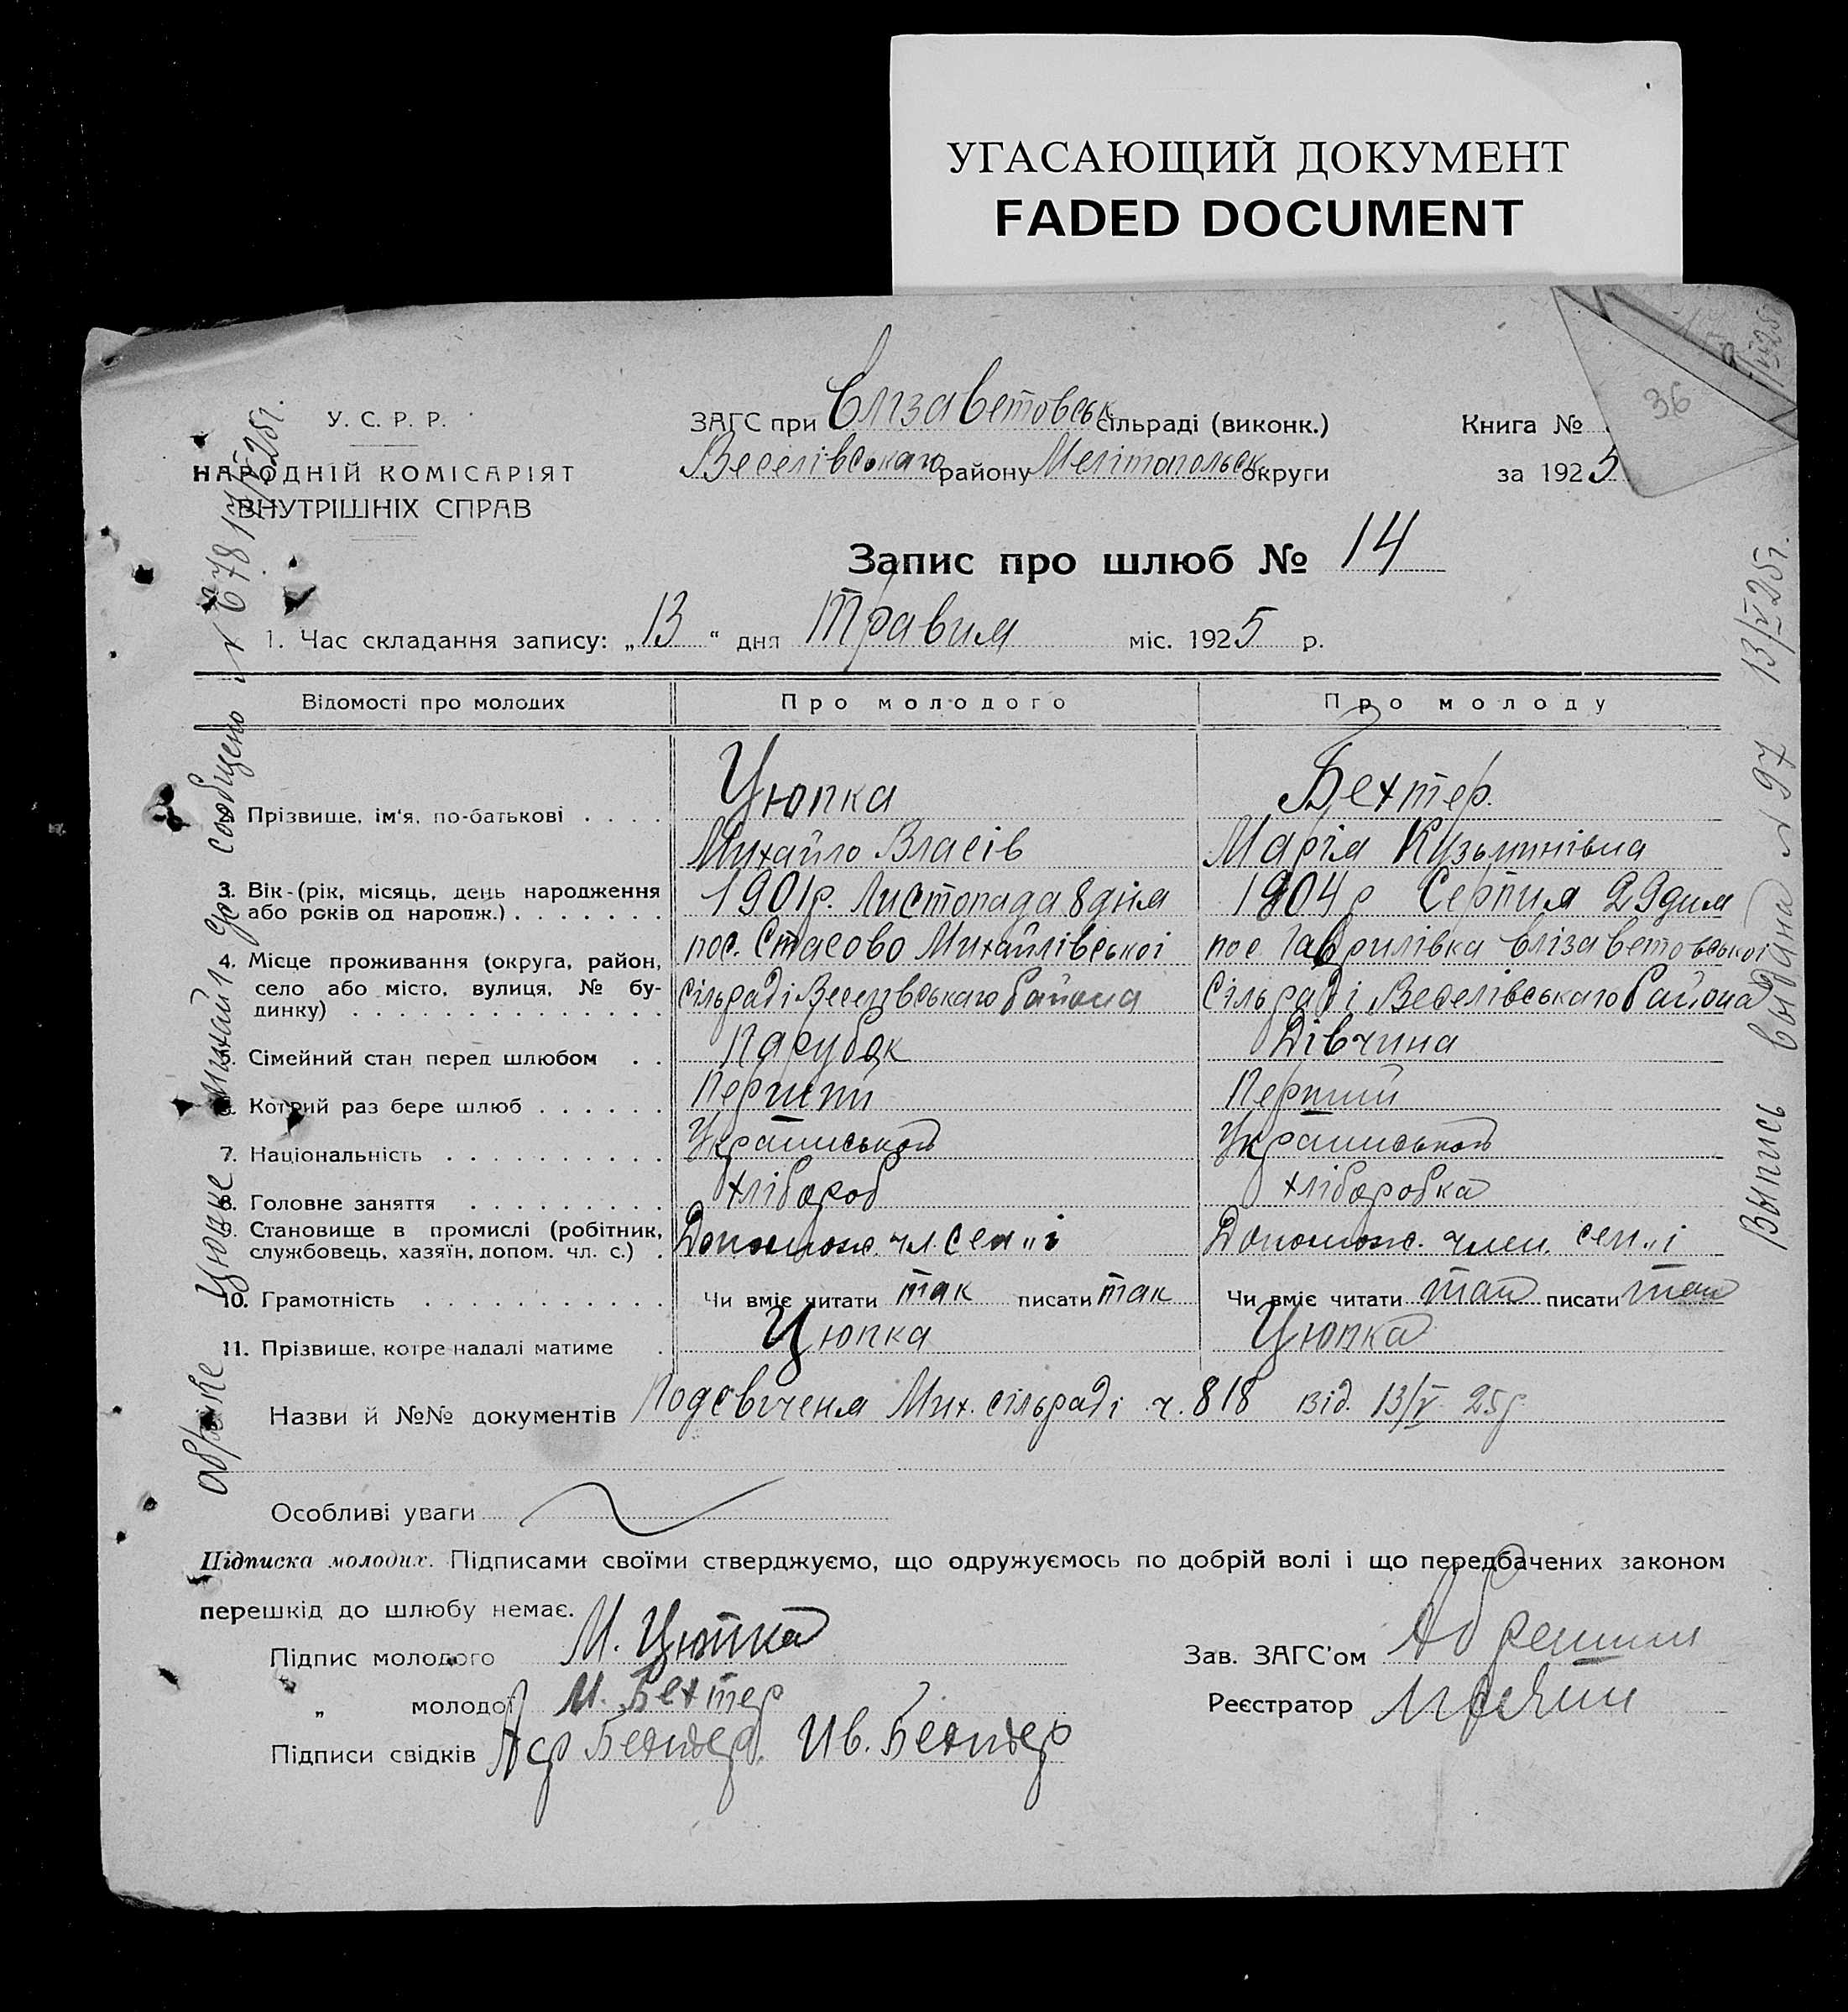 УГАСАЮЩИЙ ДОКУМЕНТ
FADED DOCUMENT
36
У. С. Р. Р.
НАРОДНІЙ КОМІСАРІЯТ
ВНУТРІШНІХ СПРАВ
ЗАГС при Єлізаветовськ сільраді (виконк.)
Веселівського району Мелітопольск округи
Книга №
за 1925
Запис про шлюб № 14
1. Час складання запису: „13“ дня Травня міс. 1925 р.
Відомості про молодих
Про молодого
Про молоду
Прізвище, ім'я, по-батькові
Цюпка
Михайло Власів
Бехтер.
Марія Кузьминівна
3. Вік-(рік, місяць, день народження
або років од народж.)
1901р. Листопада 8 дня
1904 р Серпня 29 дня
4. Місце проживання (округа, район,
село або місто, вулиця, № бу-
динку)
пос. Стасово Михайлівської
сільраді Веселівськаго района
пос Гаврилівка Єлізаветовської
Сільраді Веселівськаго Района
5. Сімейний стан перед шлюбом
Парубок
Дівчина
6. Котрий раз бере шлюб
Перший
Перший
7. Національність
Українськой
Українськой
8. Головне заняття
хлібороб
хліборобка
9. Становище в промислі (робітник,
службовець, хазяїн, допом. чл. с.)
Допомож. чл. сем"ї
Допомож. член. сем"ї
10. Грамотність
Чи вміє читати так писати так
Чи вміє читати так писати так
11. Прізвище, котре надалі матиме
Цюпка
Цюпка
Назви й №№ документів Подсвічення Мих. сільраді ч. 818 від. 13/V 25р.
Особливі уваги
Підписка молодих. Підписами своїми стверджуємо, що одружуємось по добрій волі і що передбачених законом
перешкід до шлюбу немає.
Підпис молодого М. Цюпка
„ молодої М. Бехтер
Підписи свідків Бехтер. Ив. Бехтер
Зав. ЗАГС'ом
Реєстратор
о браке Цюпке Михайл сообщено № 678 17/V 25г.
Выпись выдана № 97 13/V 25г.